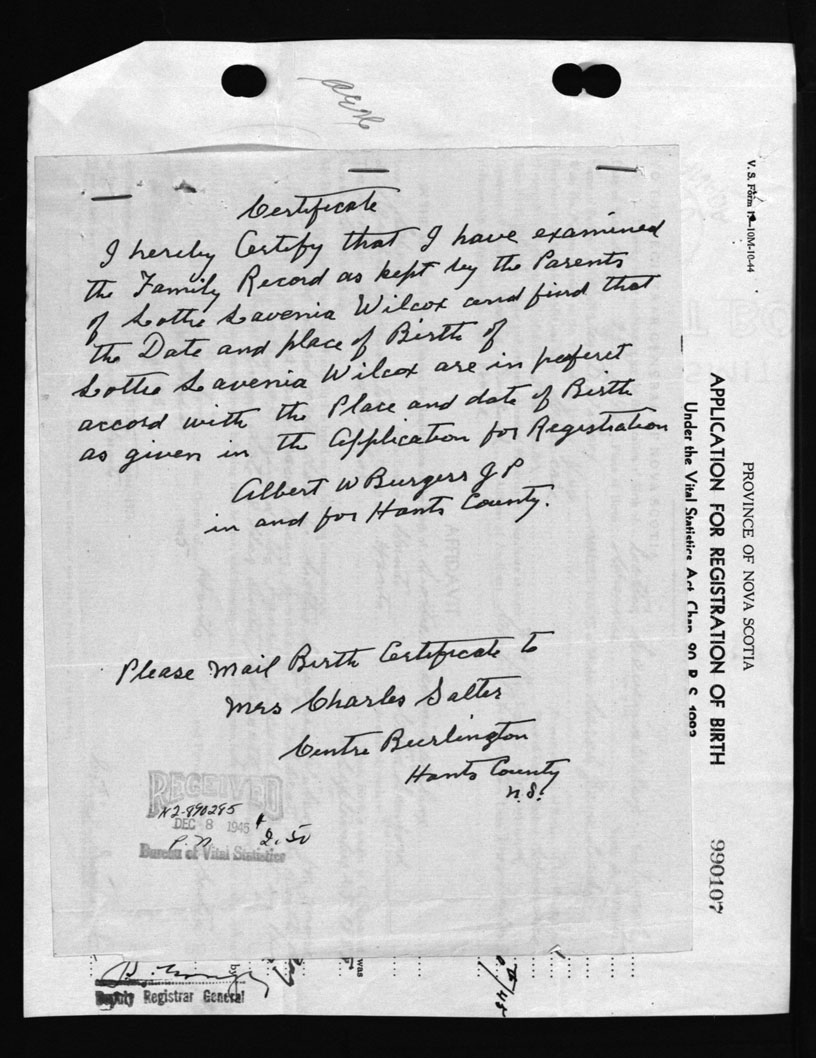 Certificate
I hereby Certify that I have examined
the Family Record as kept by the Parents
of Lottie Lavenia Wilcox and find that
the Date and place of Birth of
Lottie Lavenia Wilcox are in peferct
accord with the Place and date of Birth
as given in the Application for Registration
Albert W Burgess J P
in and for Hants County.
Please Mail Birth Certificate to
Mrs Charles Salter
Centre Burlington
Hants County
N.S.
RECEIVED
N2-890285
DEC 8 1945
$2.50
P.N
Bureau of Vital Statistics
by
was
Deputy Registrar General
V. S. Form 12—10M-10-44
PROVINCE OF NOVA SCOTIA
APPLICATION FOR REGISTRATION OF BIRTH
Under the Vital Statistics Act, Chap. 20 R. S. 1923
990107